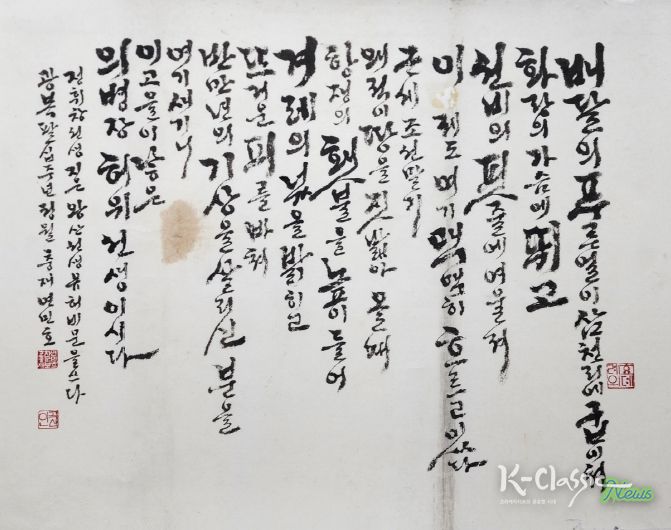 배달의 푸른 얼이 삼천리에 굽이쳐
화랑의 가슴에 뛰고
선비의 핏줄에 여울져
이제도 여기 맥맥히 흐르고 있다
근세 조선 말기
왜적이 땅을 짓밟아 올 때
항쟁의 횃불을 높이 들어
겨레의 넋을 밝히고
뜨거운 피를 바쳐
반만년의 기상을 살리신 분을
여기 새기니
이 고을이 낳은
의병장 허위 선생이시다
정휘창 선생 짓은 왕산 선생 유허비문을 쓰다
광복 팔십주년 정월 중재 연민호
K-Classic News